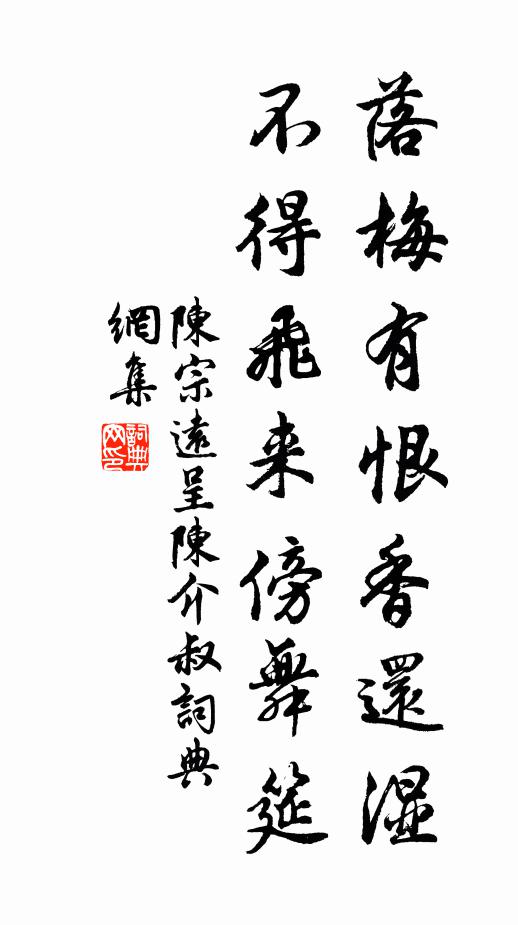 落梅有恨香還湿
不得飛来傍舞筵
陳宗遠呈陳介叔詞典
網集
詞典
网印